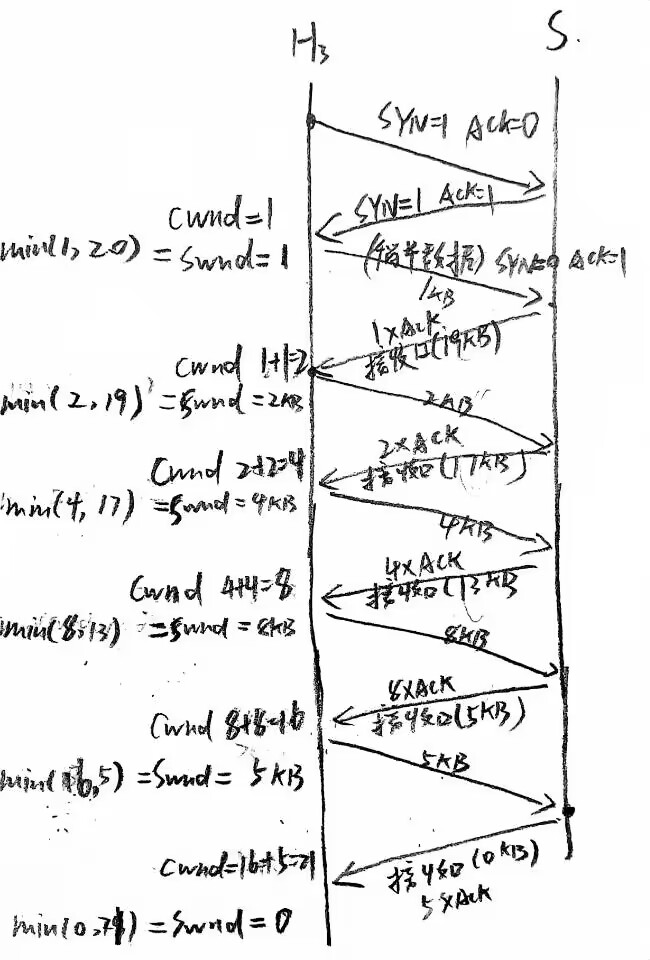 H₃ S.
SYN=1 ACK=0
SYN=1 ACK=1
cwnd=1
min(1,20) = swnd=1
(携带数据) SYN=0 ACK=1
1KB
1×ACK
接收口(19KB)
cwnd 1+1=2
min(2,19) = swnd=2KB
2KB
2×ACK
接收口(17KB)
cwnd 2+2=4
min(4,17) = swnd=4KB
4KB
4×ACK
接收口(13KB
cwnd 4+4=8
min(8,13) = swnd=8KB
8KB
8×ACK
接收口(5KB)
cwnd 8+8=16
min(16,5) = swnd= 5KB
5KB
接收口(0KB)
5×ACK
cwnd=16+5=21
min(0,21) = swnd=0